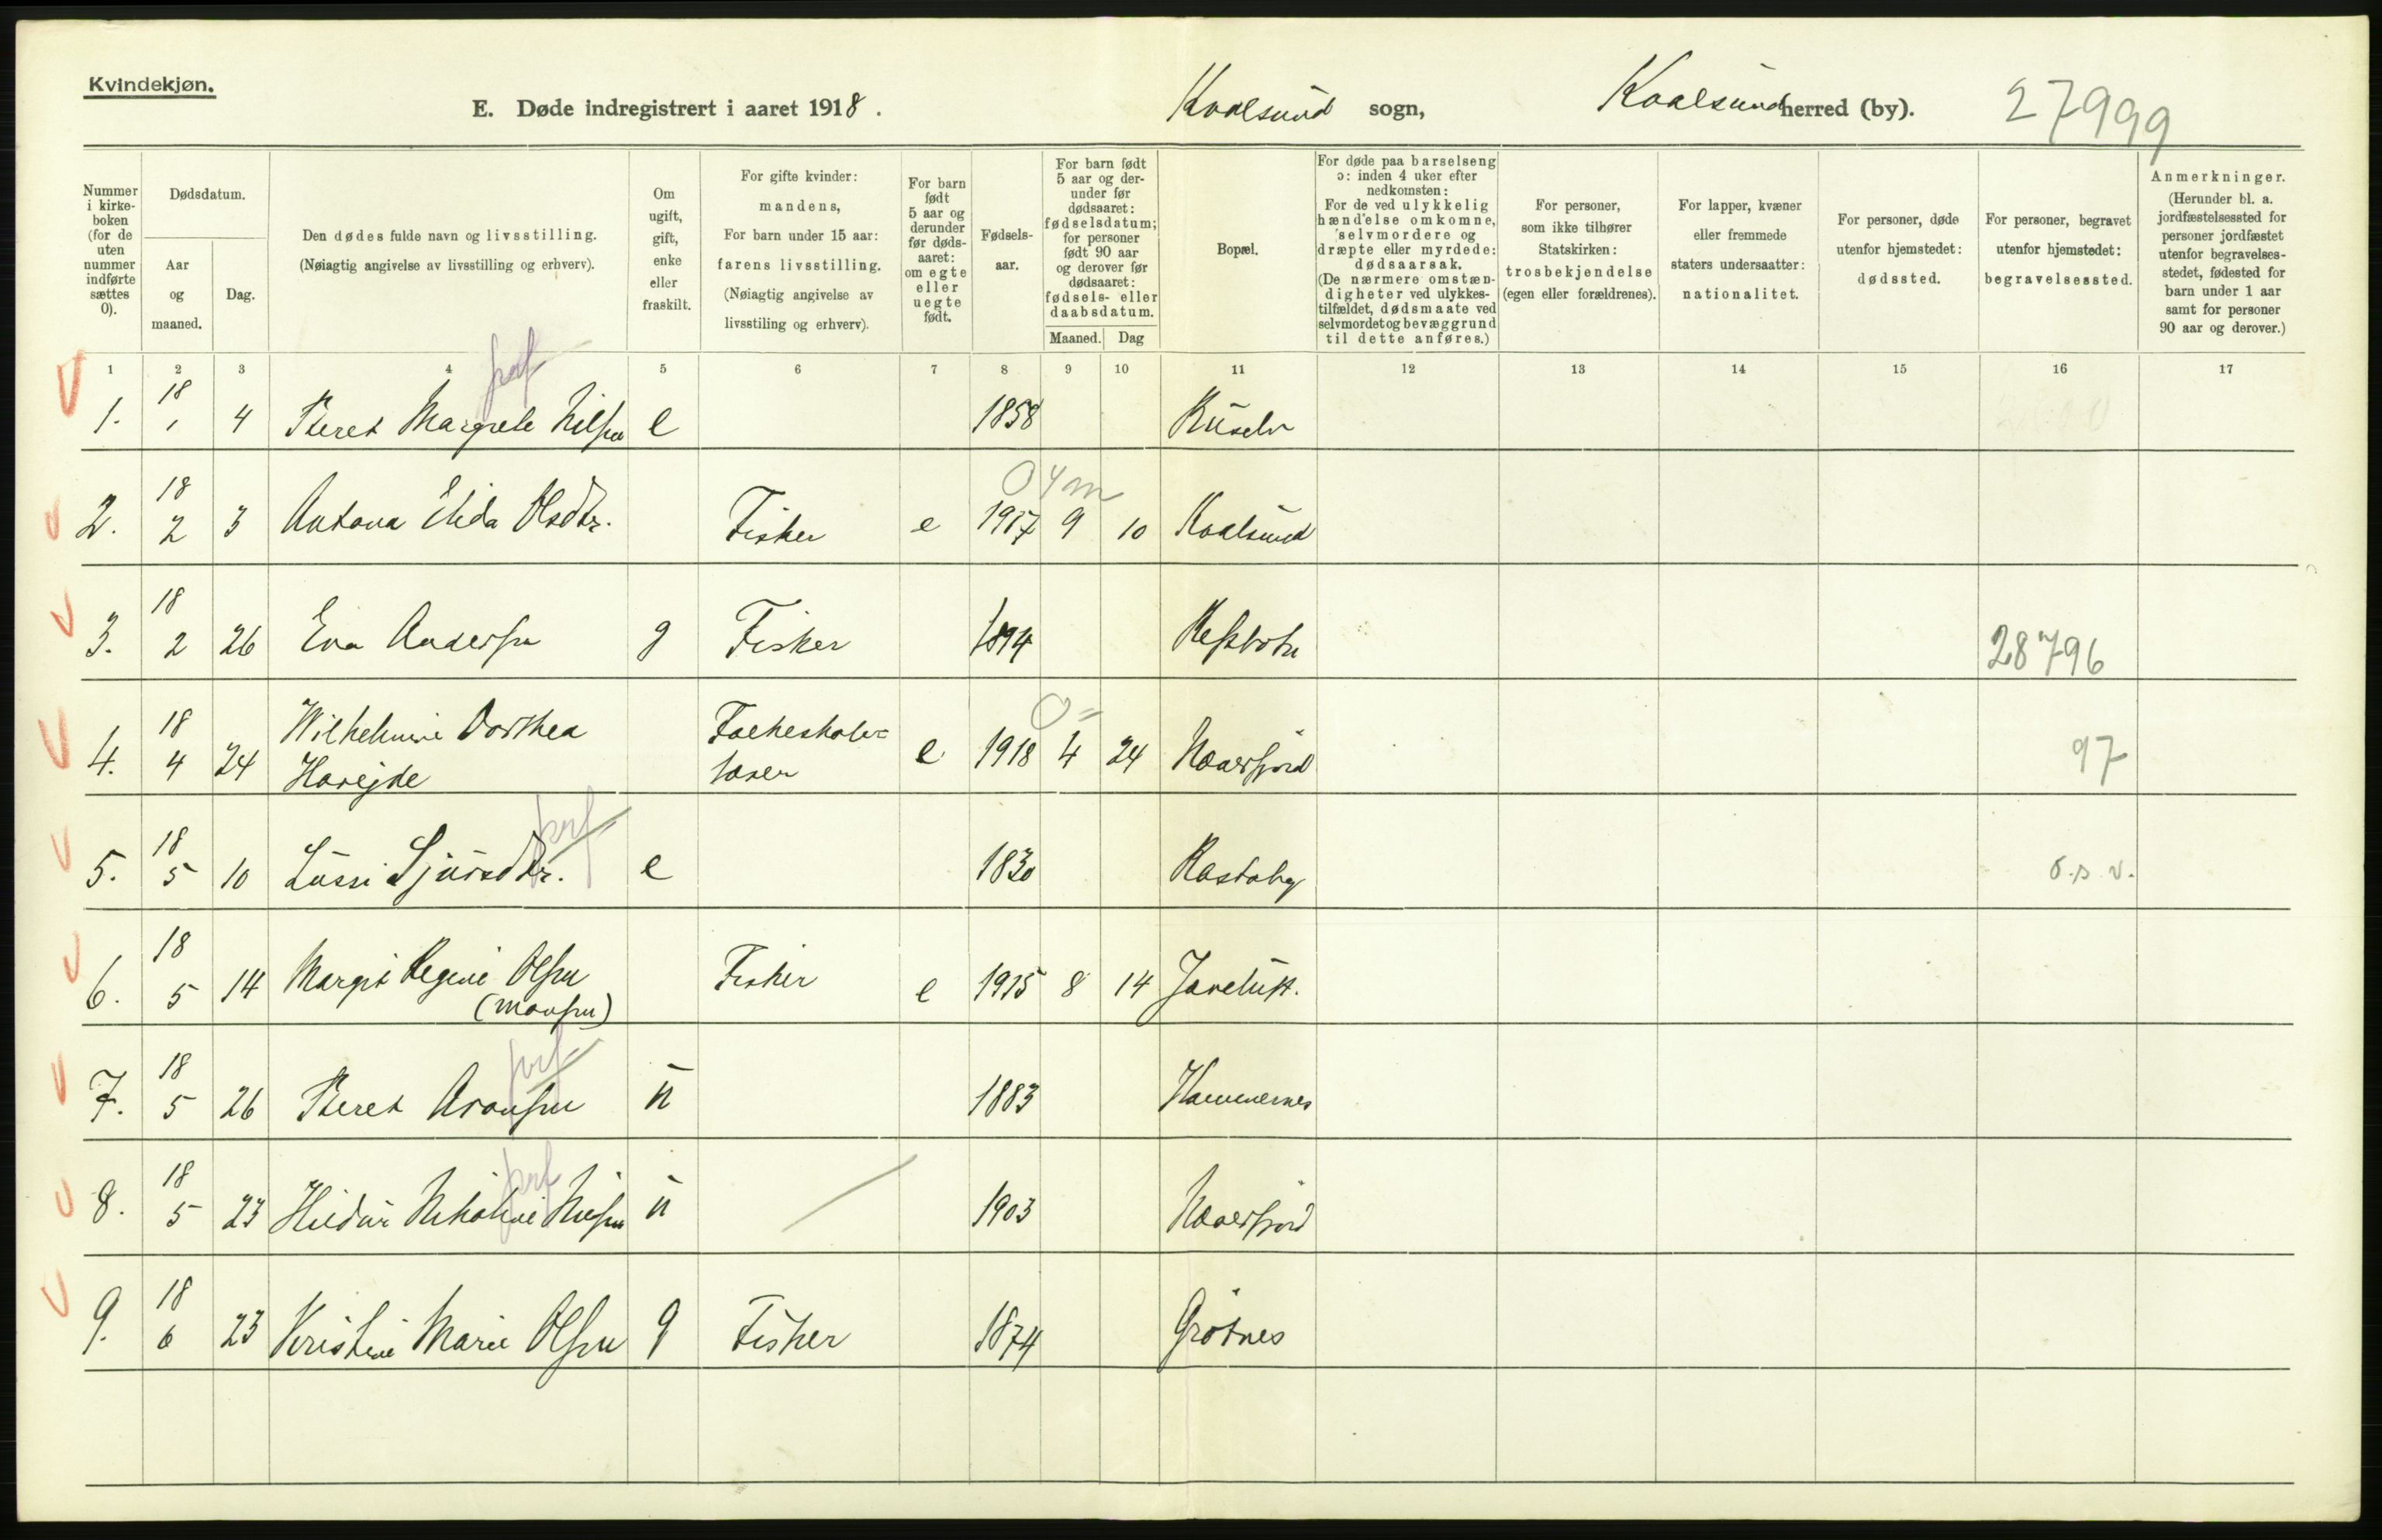 Kvindekjøn.
E. Døde indregistrert i aaret 1918. Kvalsund sogn, Kvalsund herred (by). 27999
Nummer i kirke-boken (for de uten nummer indførte sættes 0).
Dødsdatum.
Aar og maaned.
Dag.
Den dødes fulde navn og livsstilling.
(Nøiagtig angivelse av livsstilling og erhverv).
Om ugift, gift, enke eller fraskilt.
For gifte kvinder: mandens,
For barn under 15 aar: farens livsstilling.
(Nøiagtig angivelse av livsstiling og erhverv).
For barn født 5 aar og derunder før døds-aaret: om egte eller uegte født.
Fødsels-aar.
For barn født 5 aar og der-under før dødsaaret: fødselsdatum; for personer født 90 aar og derover før dødsaaret: fødsels- eller daabsdatum.
Maaned. Dag
Bopæl.
For døde paa barselseng ɔ: inden 4 uker efter nedkomsten:
For de ved ulykkelig hændelse omkomne, selvmordere og dræpte eller myrdede: dødsaarsak.
(De nærmere omstæn-digheter ved ulykkes-tilfældet, dødsmaate ved selvmordet og bevæggrund til dette anføres.)
For personer, som ikke tilhører Statskirken: trosbekjendelse (egen eller forældrenes).
For lapper, kvæner eller fremmede staters undersaatter: nationalitet.
For personer, døde utenfor hjemstedet: dødssted.
For personer, begravet utenfor hjemstedet: begravelsessted.
Anmerkninger.
(Herunder bl. a. jordfæstelsessted for personer jordfæstet utenfor begravelses-stedet, fødested for barn under 1 aar samt for personer 90 aar og derover.)
1 2 3 4 5 6 7 8 9 10 11 12 13 14 15 16 17
1. 18 1 4 Beret Margrete Nilsen e 1858
04m
2. 18 2 3 Antona Elida Olsdtr. Fisker e 1917 9 10 Kvalsund
3. 18 2 26 Eva Andersen g Fisker 1894 28796
4. 18 4 24 Wilhelmine Dorthea e 1918 4 24 97
5. 18 5 10 Lussi Sjursdtr. e 1830 o.s.v.
6. 18 5 14 Margit Regine Olsen Fisker e 1915 8 14
7. 18 5 26 Beret Aronsen u 1883
8. 18 5 23 u 1903
9. 18 6 23 Kristine Marie Olsen g Fisker 1874 Grøtnes